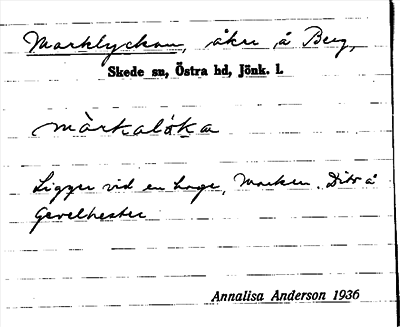 Marklyckan, åker å Berg,
Skede sn, Östra hd, Jönk. l.
màrkalö́ka
Ligger vid en hage, Marken. Dito å
Gevelhester
Annalisa Anderson 1936